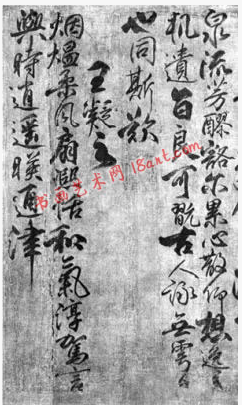 泉流芳醪豁尔累心散仰想逸
軌遺音良可翫古人詠無雩今
也同斯歎
王凝之
烟熅柔風扇熙怡和氣淳駕言
興時逍遥暎通津
书画艺术网18art.com